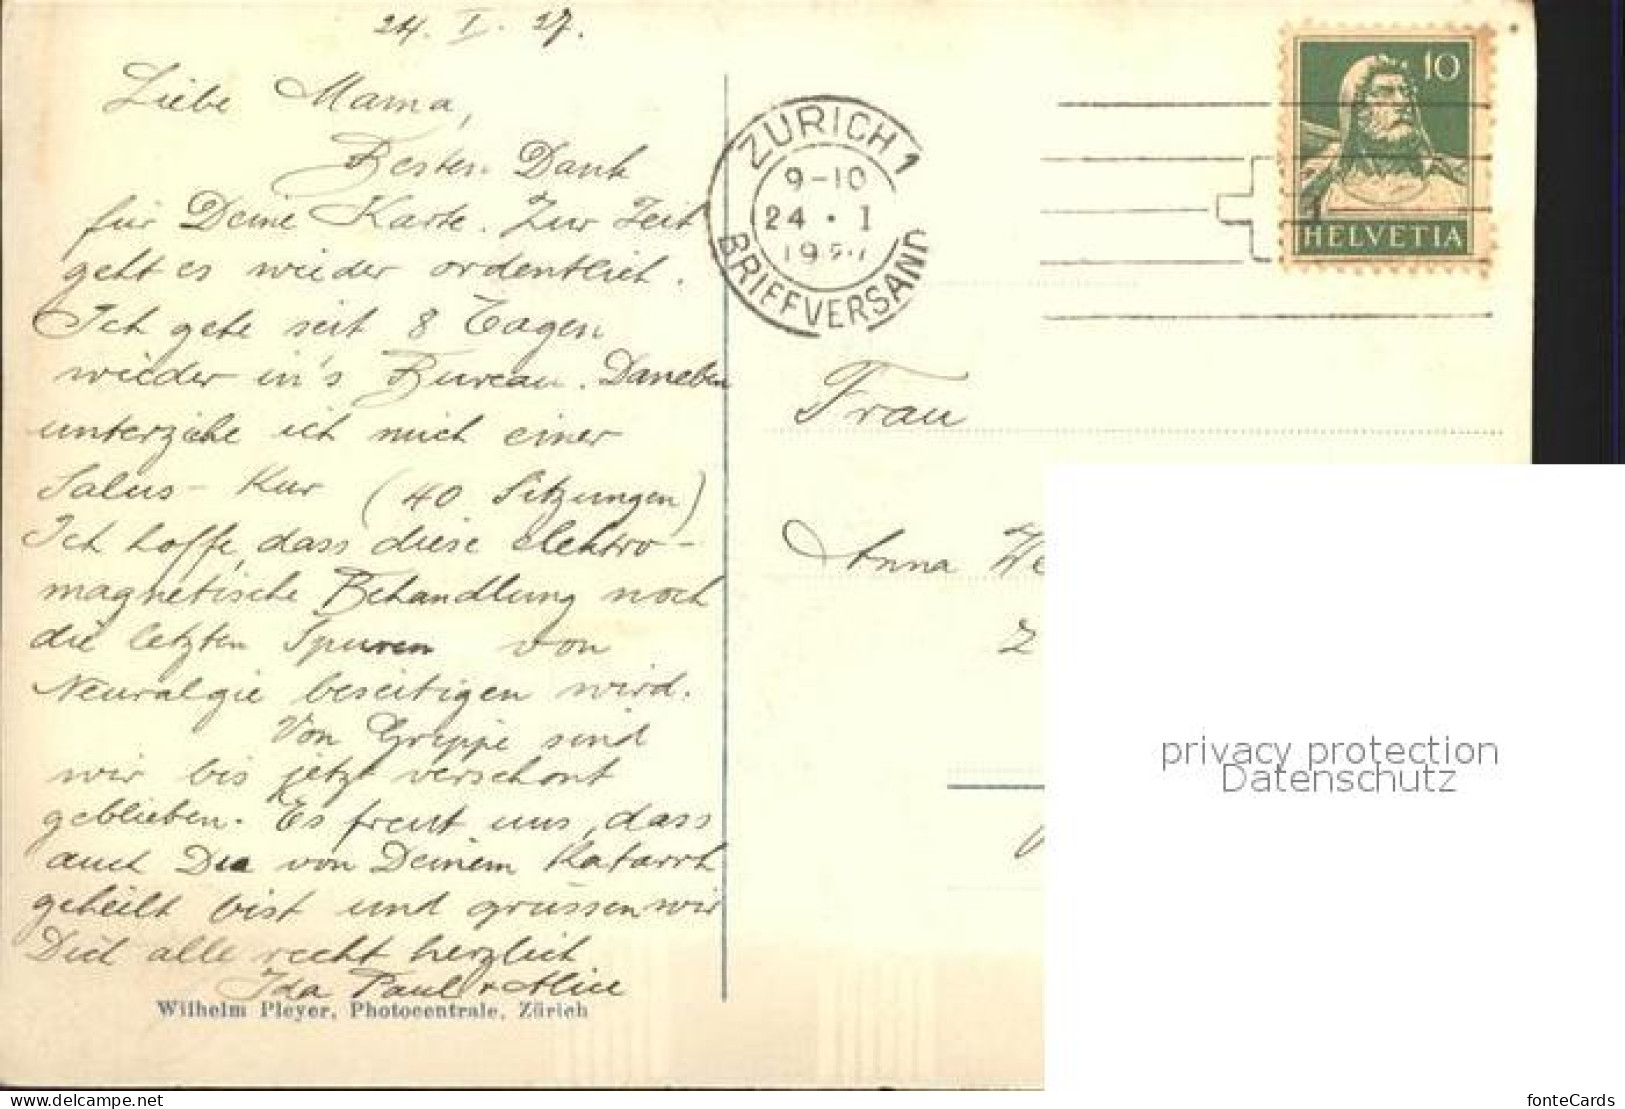 24. I. 27.
Liebe Mama,
Besten Dank
für Deine Karte. Zur Zeit
geht es wieder ordentlich.
Ich gehe seit 8 Tagen
wieder in's Bureau. Daneben
unterziehe ich mich einer
Salus-Kur (40 Sitzungen)
Ich hoffe, dass diese elektro-
magnetische Behandlung noch
die letzten Spuren von
Neuralgie beseitigen wird.
Von Grippe sind
wir bis jetzt verschont
geblieben. Es freut uns, dass
auch Du von Deinem Katarrh
geheilt bist und grüssen wir
Dich alle recht herzlich
Ida Paul + Alice
Wilhelm Pleyer, Photocentrale, Zürich
ZÜRICH 1
9-10
24 · I
BRIEFVERSAND
10
HELVETIA
Frau
Anna
privacy protection
Datenschutz
www.delcampe.net
fonteCards